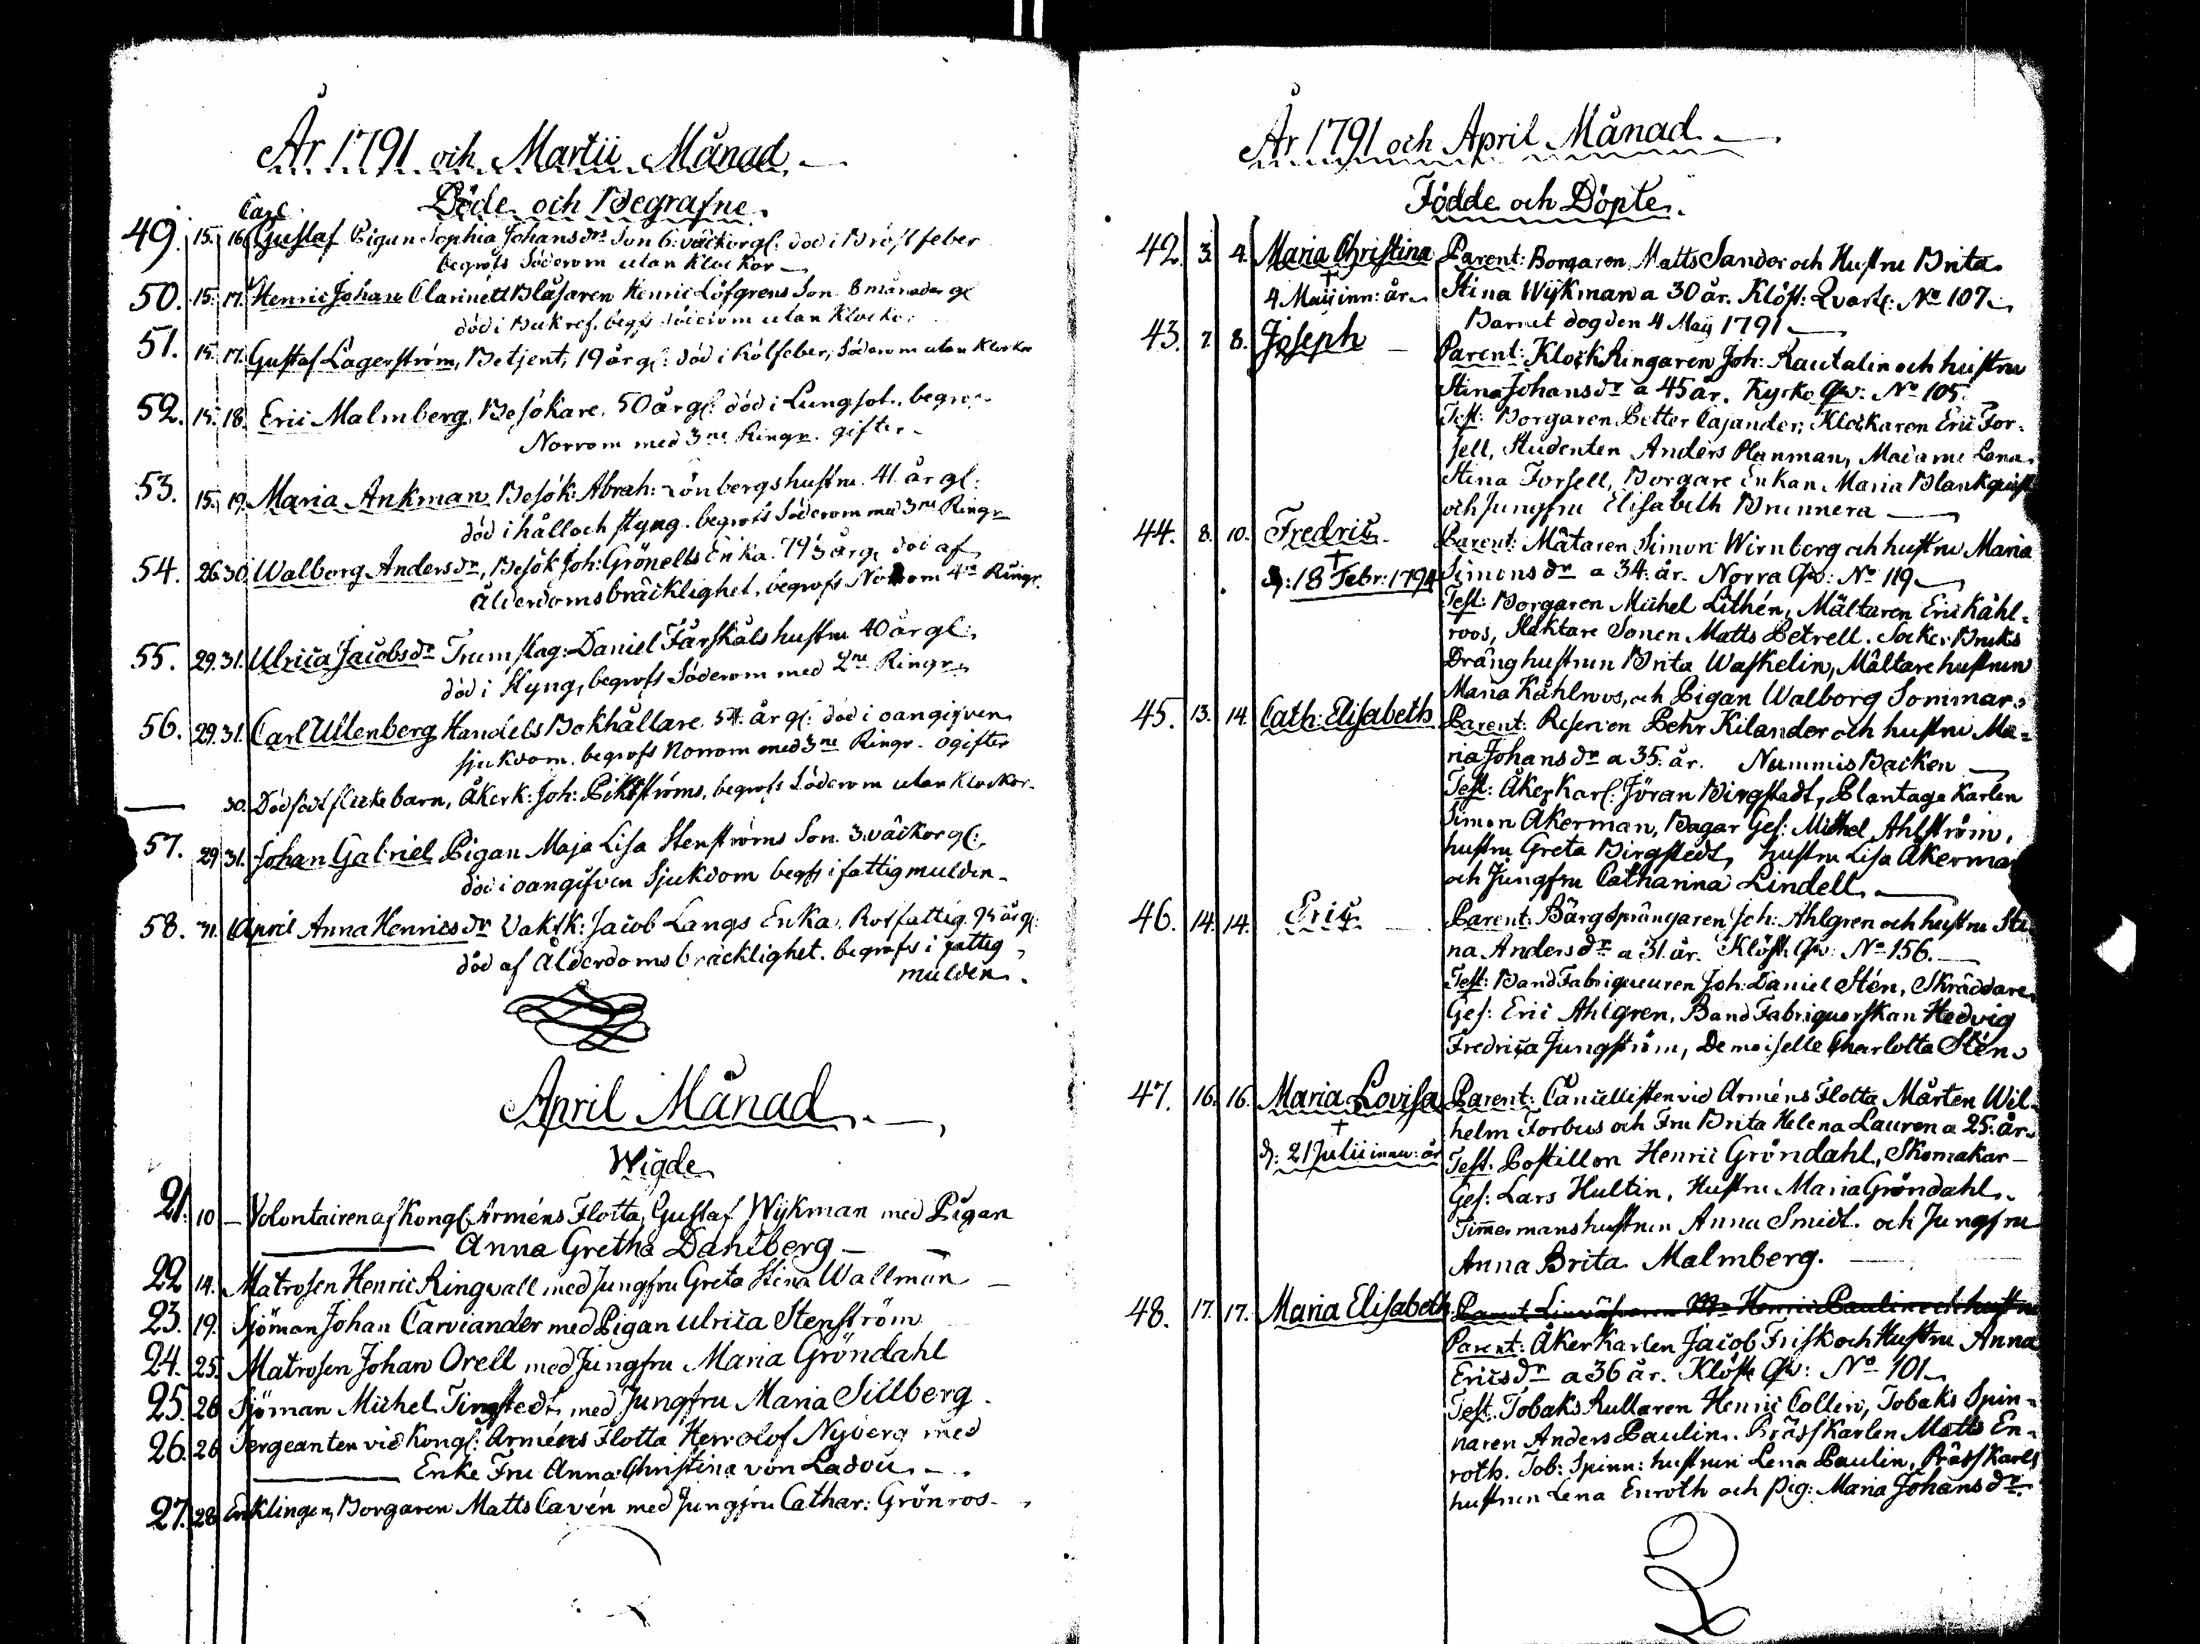 År 1791 och Martii Månad.
Döde och Begrafne.
Carl
49. 15. 16. Gustaf Pigan Sophia Johansdr Son 6. väckor gl: död i Bröstfeber
begrofs Söderom utan Klockor
50. 15. 17. Henric Johan Clarinett Blåsaren Henric Löfgrens Son 8 månader gl
död i Bukref. begrfs Söderom utan Klockor
51. 15. 17. Gustaf Lagerström, Betjent, 19 år gl: död i Rötfeber, Söderom utan Klockor
52. 15. 18. Eric Malmberg, Besökare, 50 år gl: död i Lungsot, begrofs
Norrom med 3ne Ringr. gifter
53. 15. 19. Maria Ankman, Besök: Abrah: Lönbergs hustru. 41. år gl:
död i håll och styng. begrofs Söderom med 3ne Ringr
54. 26. 30. Walborg Andersdr, Besök Joh: Grönells Enka. 79½ år gl död af
Ålderdomsbräcklighet, begrofs Norrom 4ra Ringr.
55. 29. 31. Ulrica Jacobsdr Trumslag: Daniel Fårskåls hustru 40 år gl:
död i Styng, begrofs Söderom med 2ne Ringr
56. 29. 31. Carl Ullenberg Handels Bokhållare. 54. år gl: död i oangifven
sjukdom. begrofs Norrom med 3ne Ringr. ogifter
30. Dödfödt flickebarn, Åkerk: Joh: Ekströms, begrofs Söderom utan Klockor.
57. 29. 31. Johan Gabriel Pigan Maja Lisa Stenströms Son. 3. väckor gl:
död i oangifven Sjukdom begrfs i fattigmulden
58. 31. 1 April Anna Henricsdr Vaktk: Jacob Langs Enka. Rotfattig. 95 år gl:
död af Ålderdomsbräcklighet. begrofs i fattig
mulden.
April Månad.
Wigde
21. 10 — Volontairen af Kongl. Arméns Flotta, Gustaf Wijkman med Pigan
Anna Gretha Dahlberg —
22 14. Matrosen Henric Ringvall med Jungfru Greta Stina Wallman
23. 19. Sjöman Johan Carviander med Pigan Ulrica Stenström
24. 25. Matrosen Johan Orell med Jungfru Maria Gröndahl
25. 26 Sjöman Michel Tingstedt med Jungfru Maria Sillberg.
26. 26 Sergeanten vid Kongl: Arméns Flotta Herr Olof Nyberg med
Enke Fru Anna Christina von Ladou
27. 28 Enklingen, Borgaren Matts Cavén med Jungfru Cathar: Grönros
År 1791 och April Månad.
Födde och Döpte.
42. 3. 4. Maria Christina Parent: Borgaren Matts Sander och Hustru Brita
4 Maij inn: år. Stina Wijkman a 30 år. Klöst: Qvart: No 107
Barnet dog den 4 Maij 1791
43. 7. 8. Joseph Parent: Klockringaren Joh: Rautalin och hustru
Stina Johansdr a 45 år. Kyrko Qv: No 105.
Test: Borgaren Petter Cajander, Klockaren Eric For-
sell, Studenten Anders Planman, Madame Lena
Stina Forsell, Borgare Enkan Maria Blankquist
och Jungfru Elisabeth Brunnera
44. 8. 10. Fredric Parent: Mätaren Simon Wirnberg och hustru Maria
d: 18 Febr: 1794 Simonsdr a 34. år. Norra Qv: No 119
Test: Borgaren Michel Lithén, Mältaren Eric Kåhl-
roos, Slaktare Sonen Matts Petrell. Socker Bruks
Dräng hustrun Brita Waskelin, Mältare hustrun
Maria Kåhlroos, och Pigan Walborg Sommar
45. 13. 14. Cath: Elisabeth Parent: Reserven Pehr Kilander och hustru Ma-
ria Johansdr a 35. år. Nummis Backen
Test: Åker Karl: Jöran Birgstedt, Plantage Karlen
Simon Åkerman, Bagar Ges: Michel Ahlström,
hustru Greta Birgstedt, hustru Lisa Åkerman
och Jungfru Catharina Lindell
46. 14. 14. Eric Parent: Bärgsprängaren Joh: Ahlgren och hustru Sti
na Andersdr a 31 år. Klöst. Qv: No 156.
Test: Band Fabriqueuren Joh: Daniel Stén, Skräddare
Ges: Eric Ahlgren, Band Fabriquerskan Hedvig
Fredrica Jungström, Demoiselle Charlotta Stén
47. 16. 16. Maria Lovisa Parent: Cancellisten vid Arméns Flotta Mårten Wil-
helm Forbus och Fru Brita Helena Lauren a 25. år
d: 21 Julii innev: år Test. Postillon Henric Gröndahl, Skomakar
Ges: Lars Hultin, Hustru Maria Gröndahl
Timermans hustrun Anna Smidt. och Jungfru
Anna Brita Malmberg.
48. 17. 17. Maria Elisabeth
Parent: Åker Karlen Jacob Frisk och Hustru Anna
Ericsdr a 36 år. Klöst. Qv: No 101
Test. Tobaks Rullaren Henric Collin, Tobaks Spin-
naren Anders Paulin. Prässkarlen Matts En-
roth. Tob: Spinn: hustrun Lena Paulin, Prässkarls
hustrun Lena Enroth och Pig: Maria Johansdr